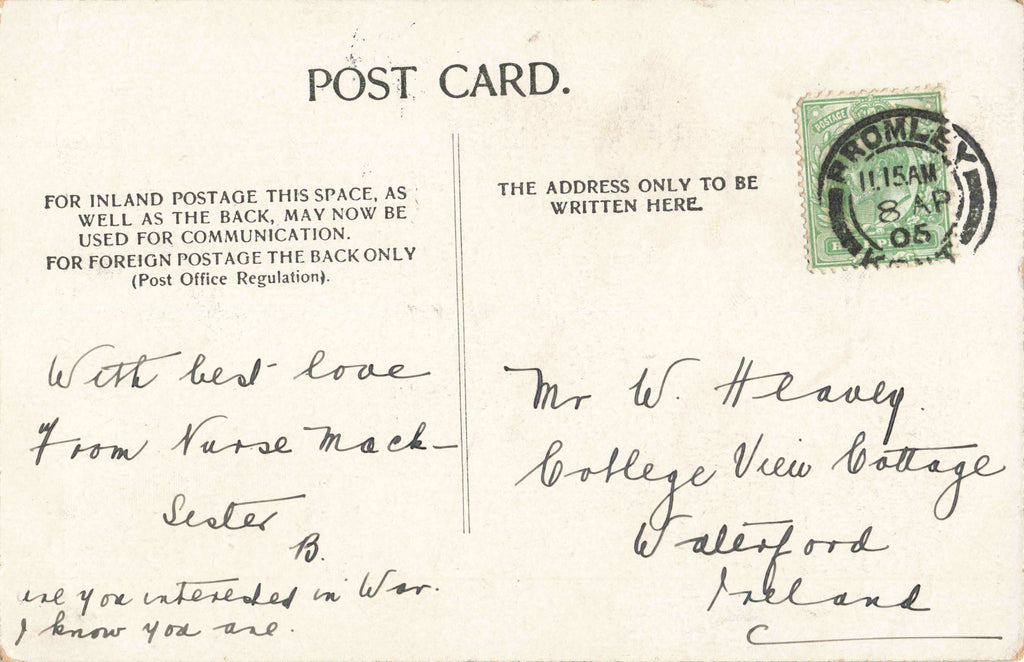 POST CARD.
FOR INLAND POSTAGE THIS SPACE, AS
WELL AS THE BACK, MAY NOW BE
USED FOR COMMUNICATION.
FOR FOREIGN POSTAGE THE BACK ONLY
(Post Office Regulation).
THE ADDRESS ONLY TO BE
WRITTEN HERE.
POSTAGE
BROMLEY
11.15AM
8 AP
05
KENT
With best love
From Nurse Mack-
Sester
B.
are you interested in War.
I know you are.
Mr W. Heavey.
College View Cottage
Waterford
Ireland